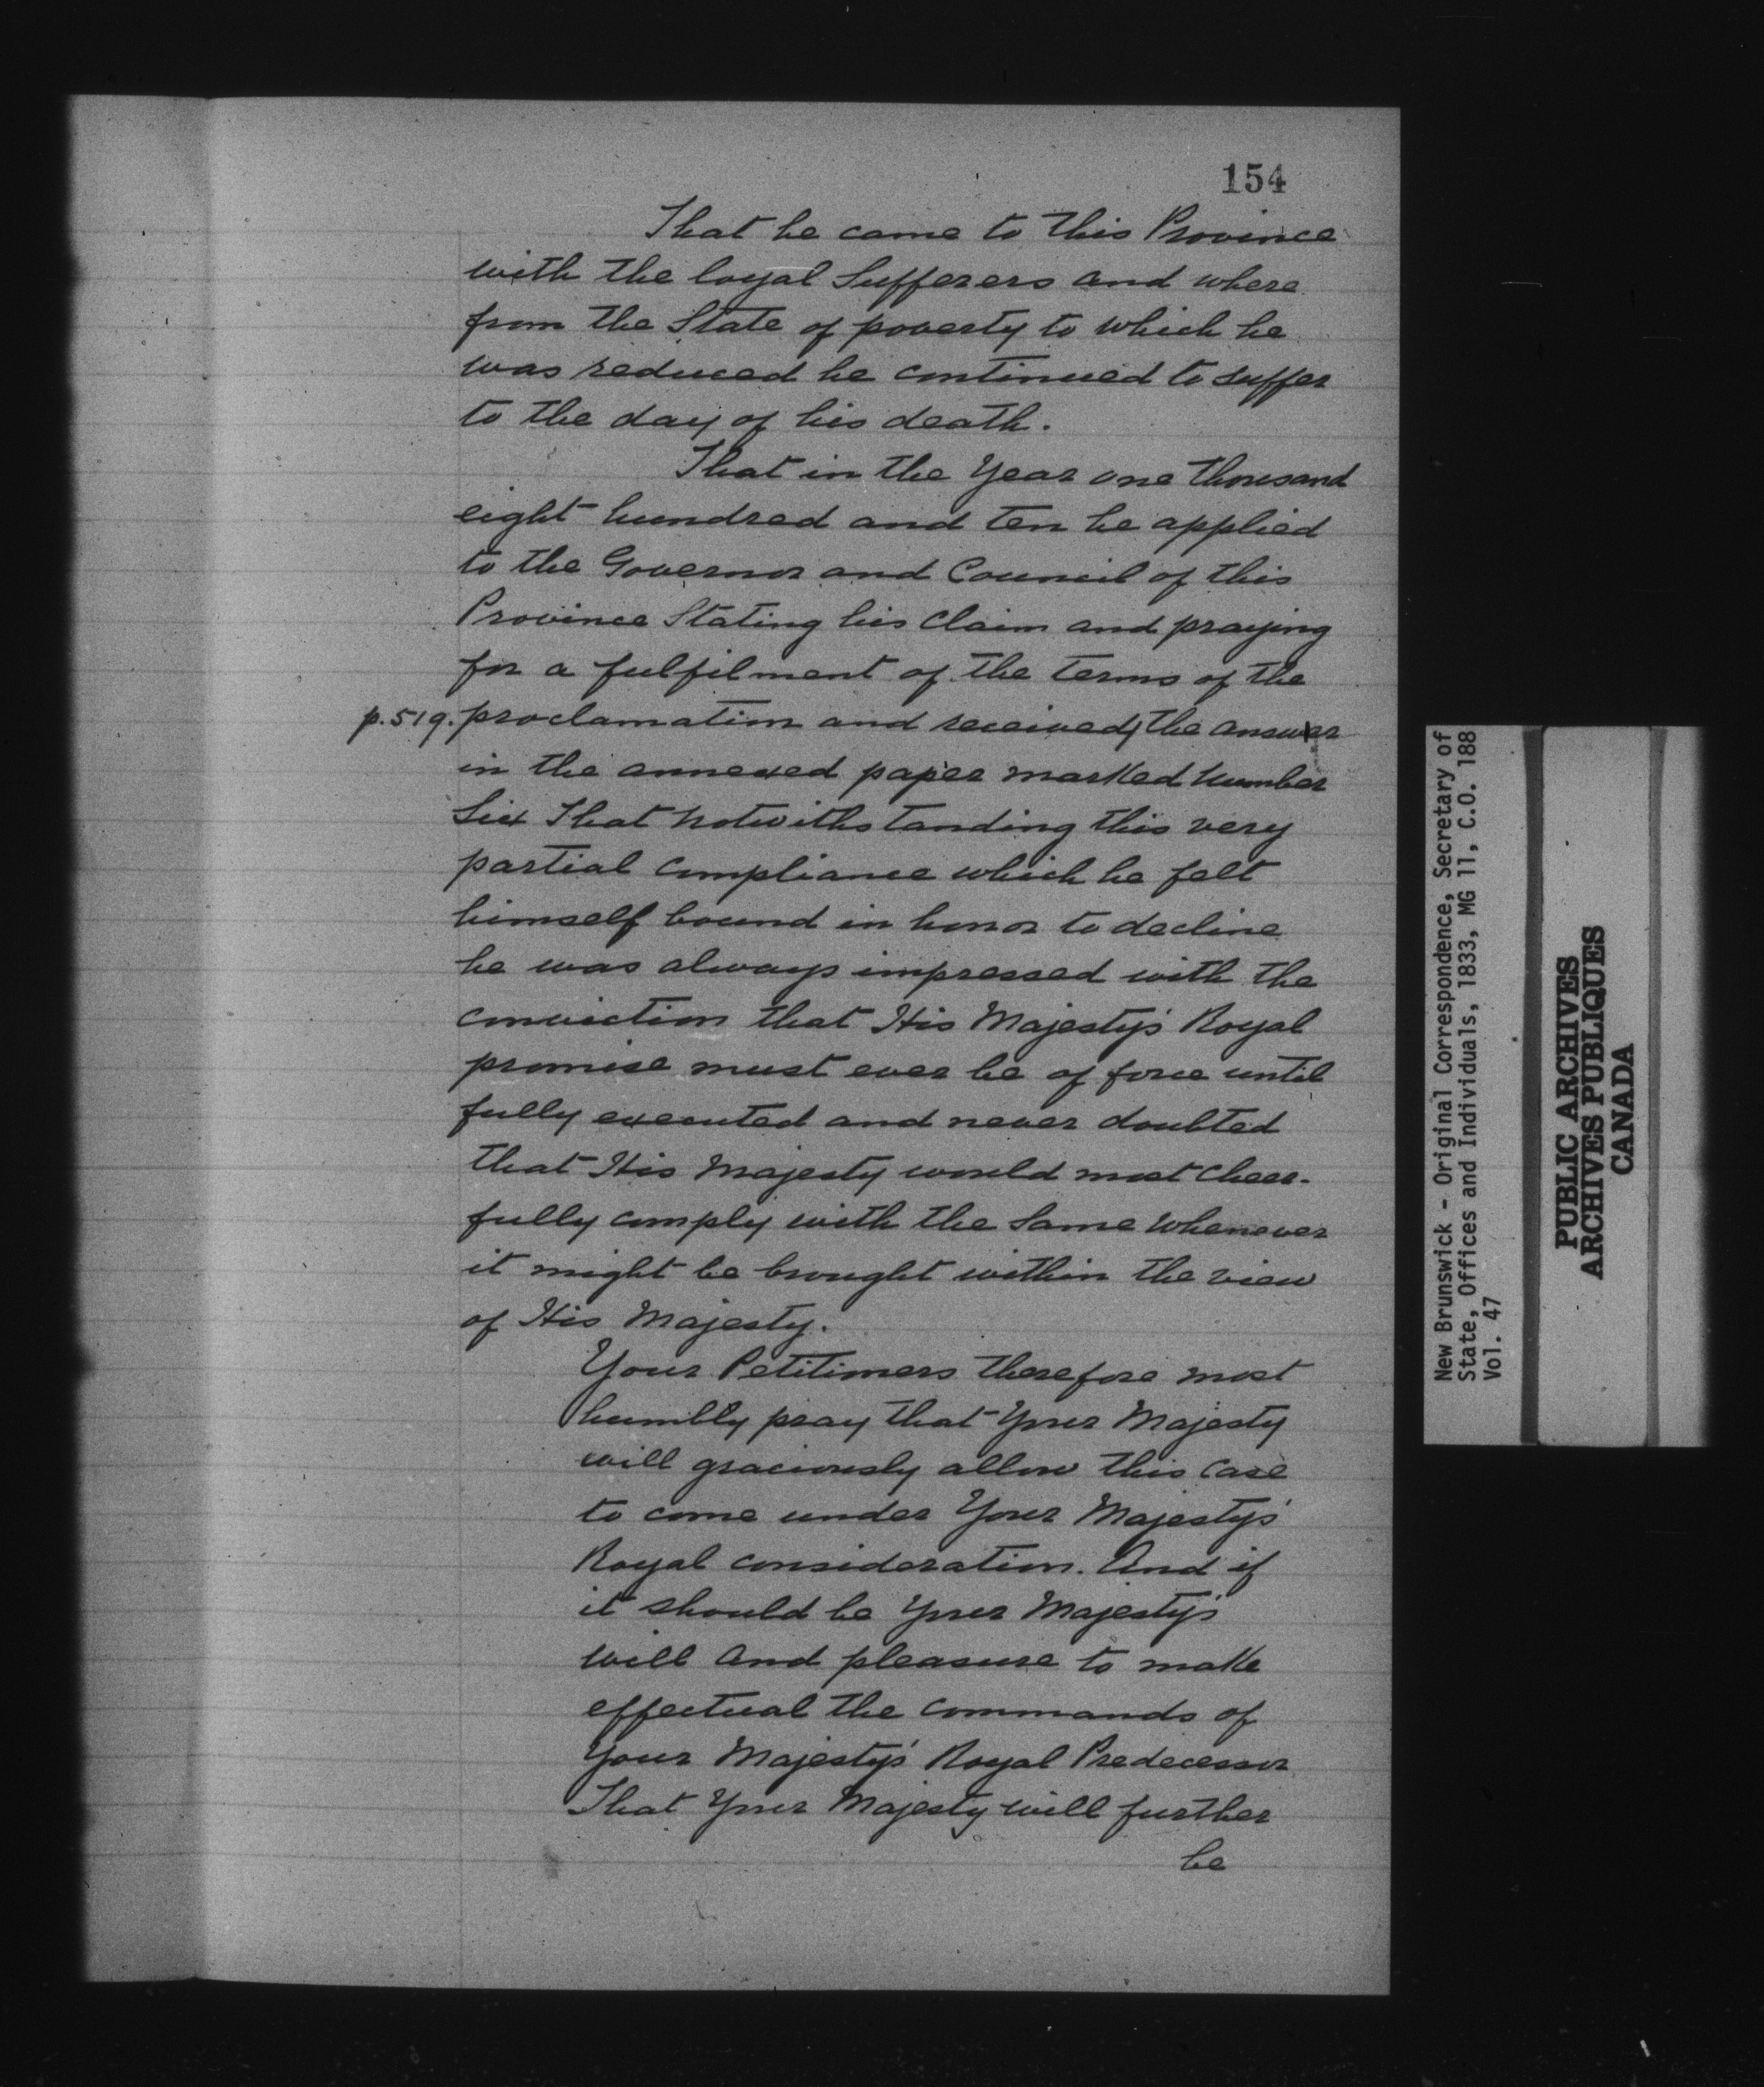 154
That he came to this Province
with the loyal Sufferers and where
from the State of poverty to which he
was reduced he continued to suffer
to the day of his death.
That in the Year one thousand
eight hundred and ten he applied
to the Governor and Council of this
Province Stating his Claim and praying
for a fulfilment of the terms of the
p.519. proclamation and received the answer
in the annexed paper marked Number
Six That Notwithstanding this very
partial compliance which he felt
himself bound in honor to decline
he was always impressed with the
conviction that His Majesty's Royal
promise must ever be of force until
fully executed and never doubted
that His Majesty would most cheer-
fully comply with the Same whenever
it might be brought within the view
of His Majesty.
Your Petitioners therefore most
humbly pray that Your Majesty
will graciously allow this Case
to come under Your Majesty's
Royal consideration. And if
it should be Your Majesty's
will and pleasure to make
effectual the commands of
Your Majesty's Royal Predecessor
That Your Majesty will further
be
New Brunswick - Original Correspondence, Secretary of
State, Offices and Individuals, 1833, MG 11, C.O. 188
Vol. 47
PUBLIC ARCHIVES
ARCHIVES PUBLIQUES
CANADA